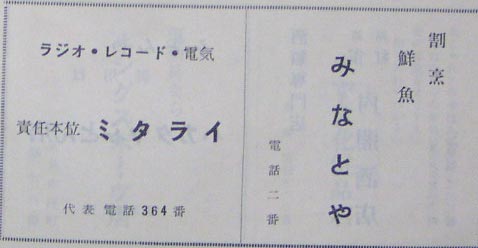 割烹
鮮魚
みなとや
電話二番
ラジオ・レコード・電気
責任本位 ミタライ
代表電話364番